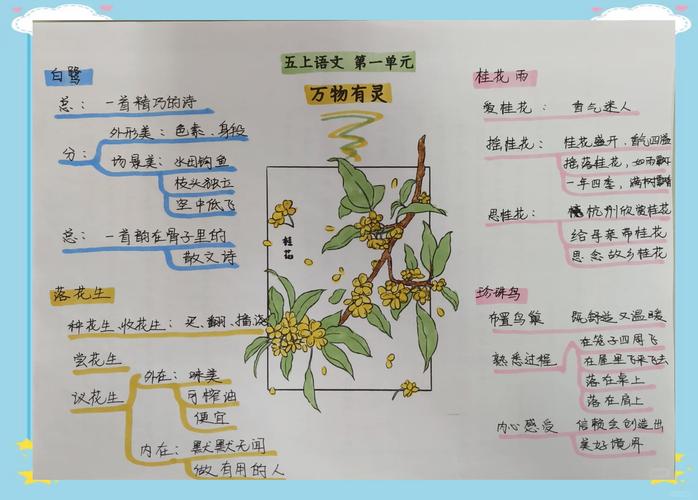 五上语文 第一单元
万物有灵
白鹭
总：一首精巧的诗
分：
外形美：色素、身段
场景美：水田钓鱼
枝头独立
空中低飞
总：一首韵在骨子里的
散文诗
落花生
种花生、收花生：买、翻、播、浇
尝花生
议花生
外在：味美
可榨油
便宜
内在：默默无闻
做有用的人
桂花
桂花雨
爱桂花：香气迷人
摇桂花：桂花盛开，香气四溢
摇落桂花，如雨
一年四季，满树
思桂花：杭州欣赏桂花
给母亲带桂花
思念故乡桂花
珍珠鸟
布置鸟巢 既舒适又温暖
熟悉过程
在笼子四周飞
在屋里飞来飞去
落在桌上
落在肩上
内心感受 信赖会创造出
美好境界